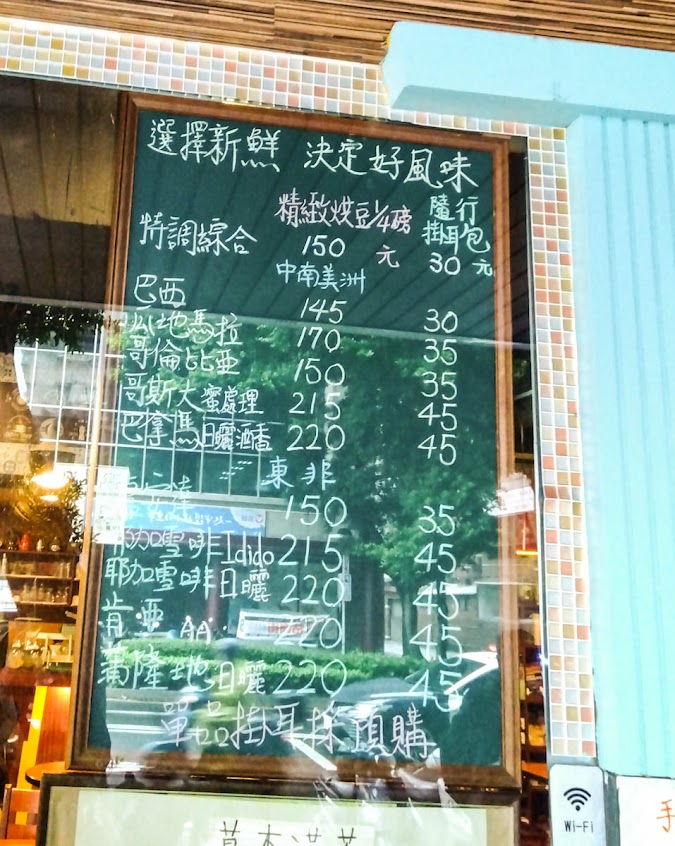 選擇新鮮 決定好風味
精緻烘豆1/4磅 隨行掛耳包
特調綜合 150元 30元
中南美洲
巴西 145 30
瓜地馬拉 170 35
哥倫比亞 150 35
哥斯大蜜處理 215 45
巴拿馬日曬酒香 220 45
東非
150 35
耶加雪啡Idido 215 45
耶加雪啡日曬 220 45
肯亞AA 220 45
蒲隆地日曬 220 45
單品掛耳採預購
Wi-Fi
手